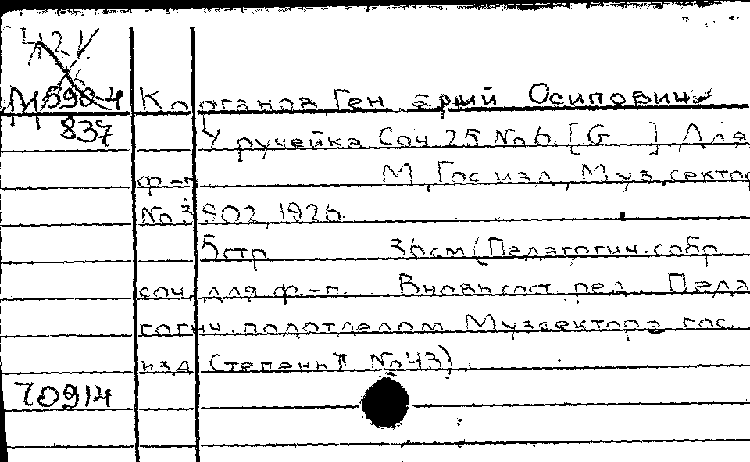 421
М5904 Корганов Генарий Осипович
837 У ручейка Соч 25 No 6. [G ] Для
ф-п М, Гос изд, Муз.сектор
No 3802, 1926
5стр 36см (Педагогич.собр
соч. для ф.-п. Вновь сост ред Педа
гогич. подотделом Музсектора гос
изд Степень II No 43)
70914